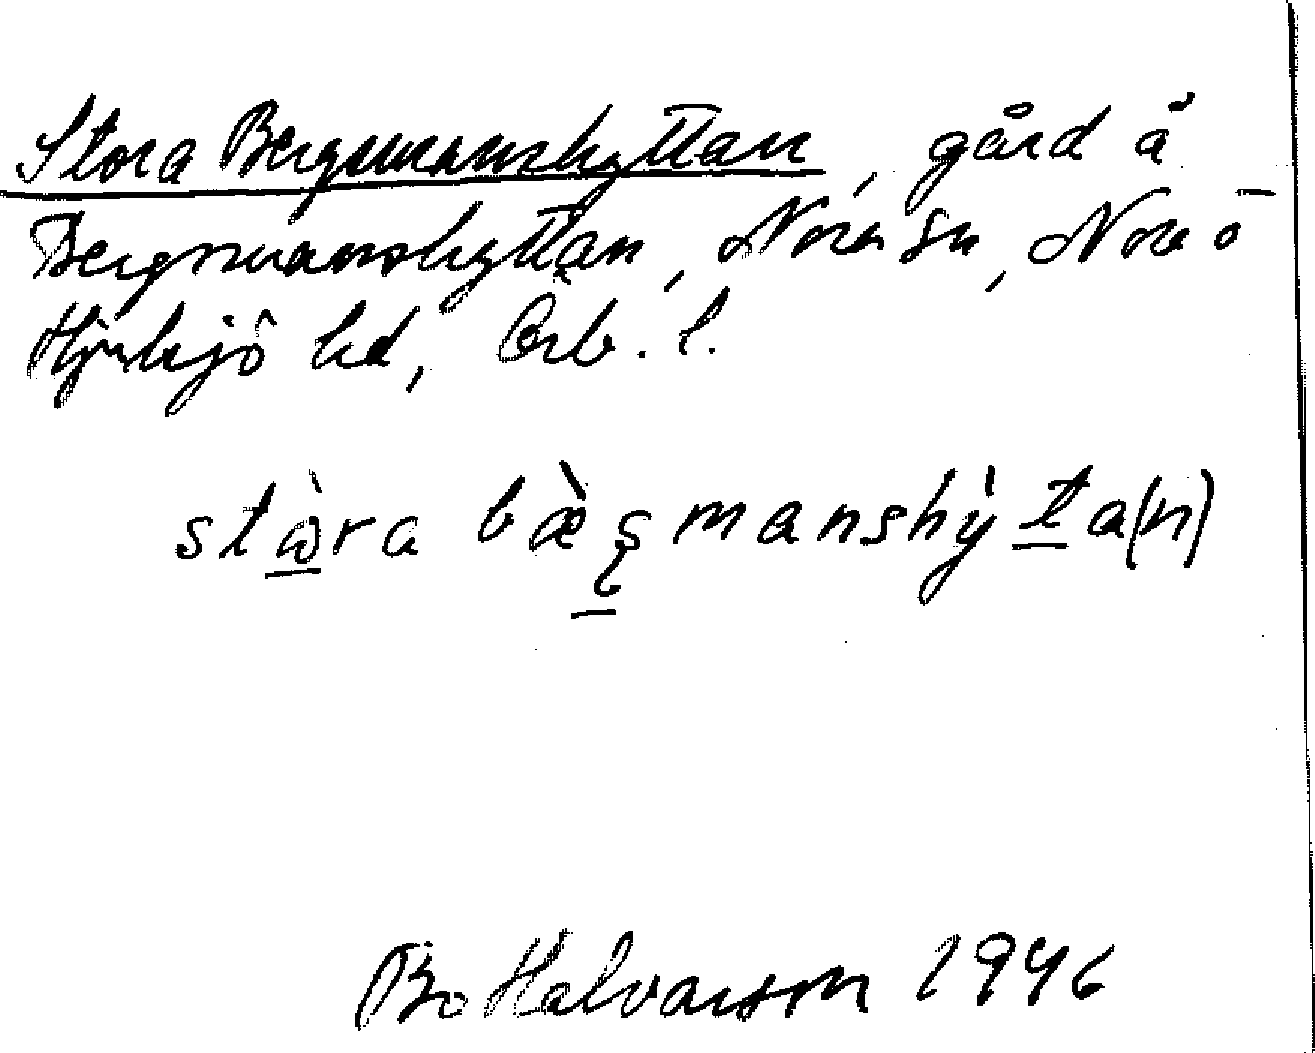 Stora Bergsmanshyttan, gård å
Bergsmanshyttan, Nora sn, Nora o
Hjulsjö hd, Örb. l.
stὼra bæ̀ȿmanshỳta(n)
Bo Halvarson 1946